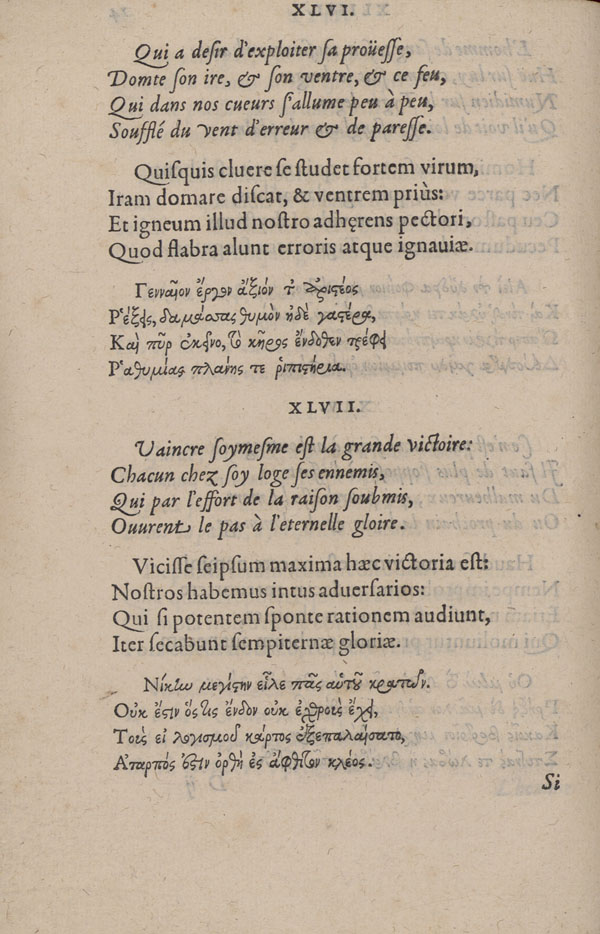 XLVI.
Qui a desir d'exploiter sa proüesse,
Domte son ire, & son ventre, & ce feu,
Qui dans nos cueurs s'allume peu à peu,
Soufflé du vent d'erreur & de paresse.
Quisquis cluere se studet fortem virum,
Iram domare discat, & ventrem priùs:
Et igneum illud nostro adhęrens pectori,
Quod flabra alunt erroris atque ignauiæ.
Γενναῖον ἔργον ἄξιόν τ' ἀριστέος
Ῥέξεις, δαμάσας θυμὸν ἠδὲ γαστέρα,
Καὶ πῦρ ἐκεῖνο, τὸ κῆρος ἔνδοθεν τρέφει
Ῥαθυμίας πλάνης τε ῥιπιστήρια.
XLVII.
Vaincre soymesme est la grande victoire:
Chacun chez soy loge ses ennemis,
Qui par l'effort de la raison soubmis,
Ouurent le pas à l'eternelle gloire.
Vicisse seipsum maxima hæc victoria est:
Nostros habemus intus aduersarios:
Qui si potentem sponte rationem audiunt,
Iter secabunt sempiternæ gloriæ.
Νίκην μεγίστην εἷλε πᾶς αὑτοῦ κρατῶν.
Οὐκ ἔστιν ὅστις ἔνδον οὐκ ἐχθροὺς ἔχει,
Τοῖς εἰ λογισμοῦ κάρτος ἐξεπαλαίσατο,
Ἀταρπός ἐστιν ὀρθὴ ἐς ἄφθιτον κλέος.
Si